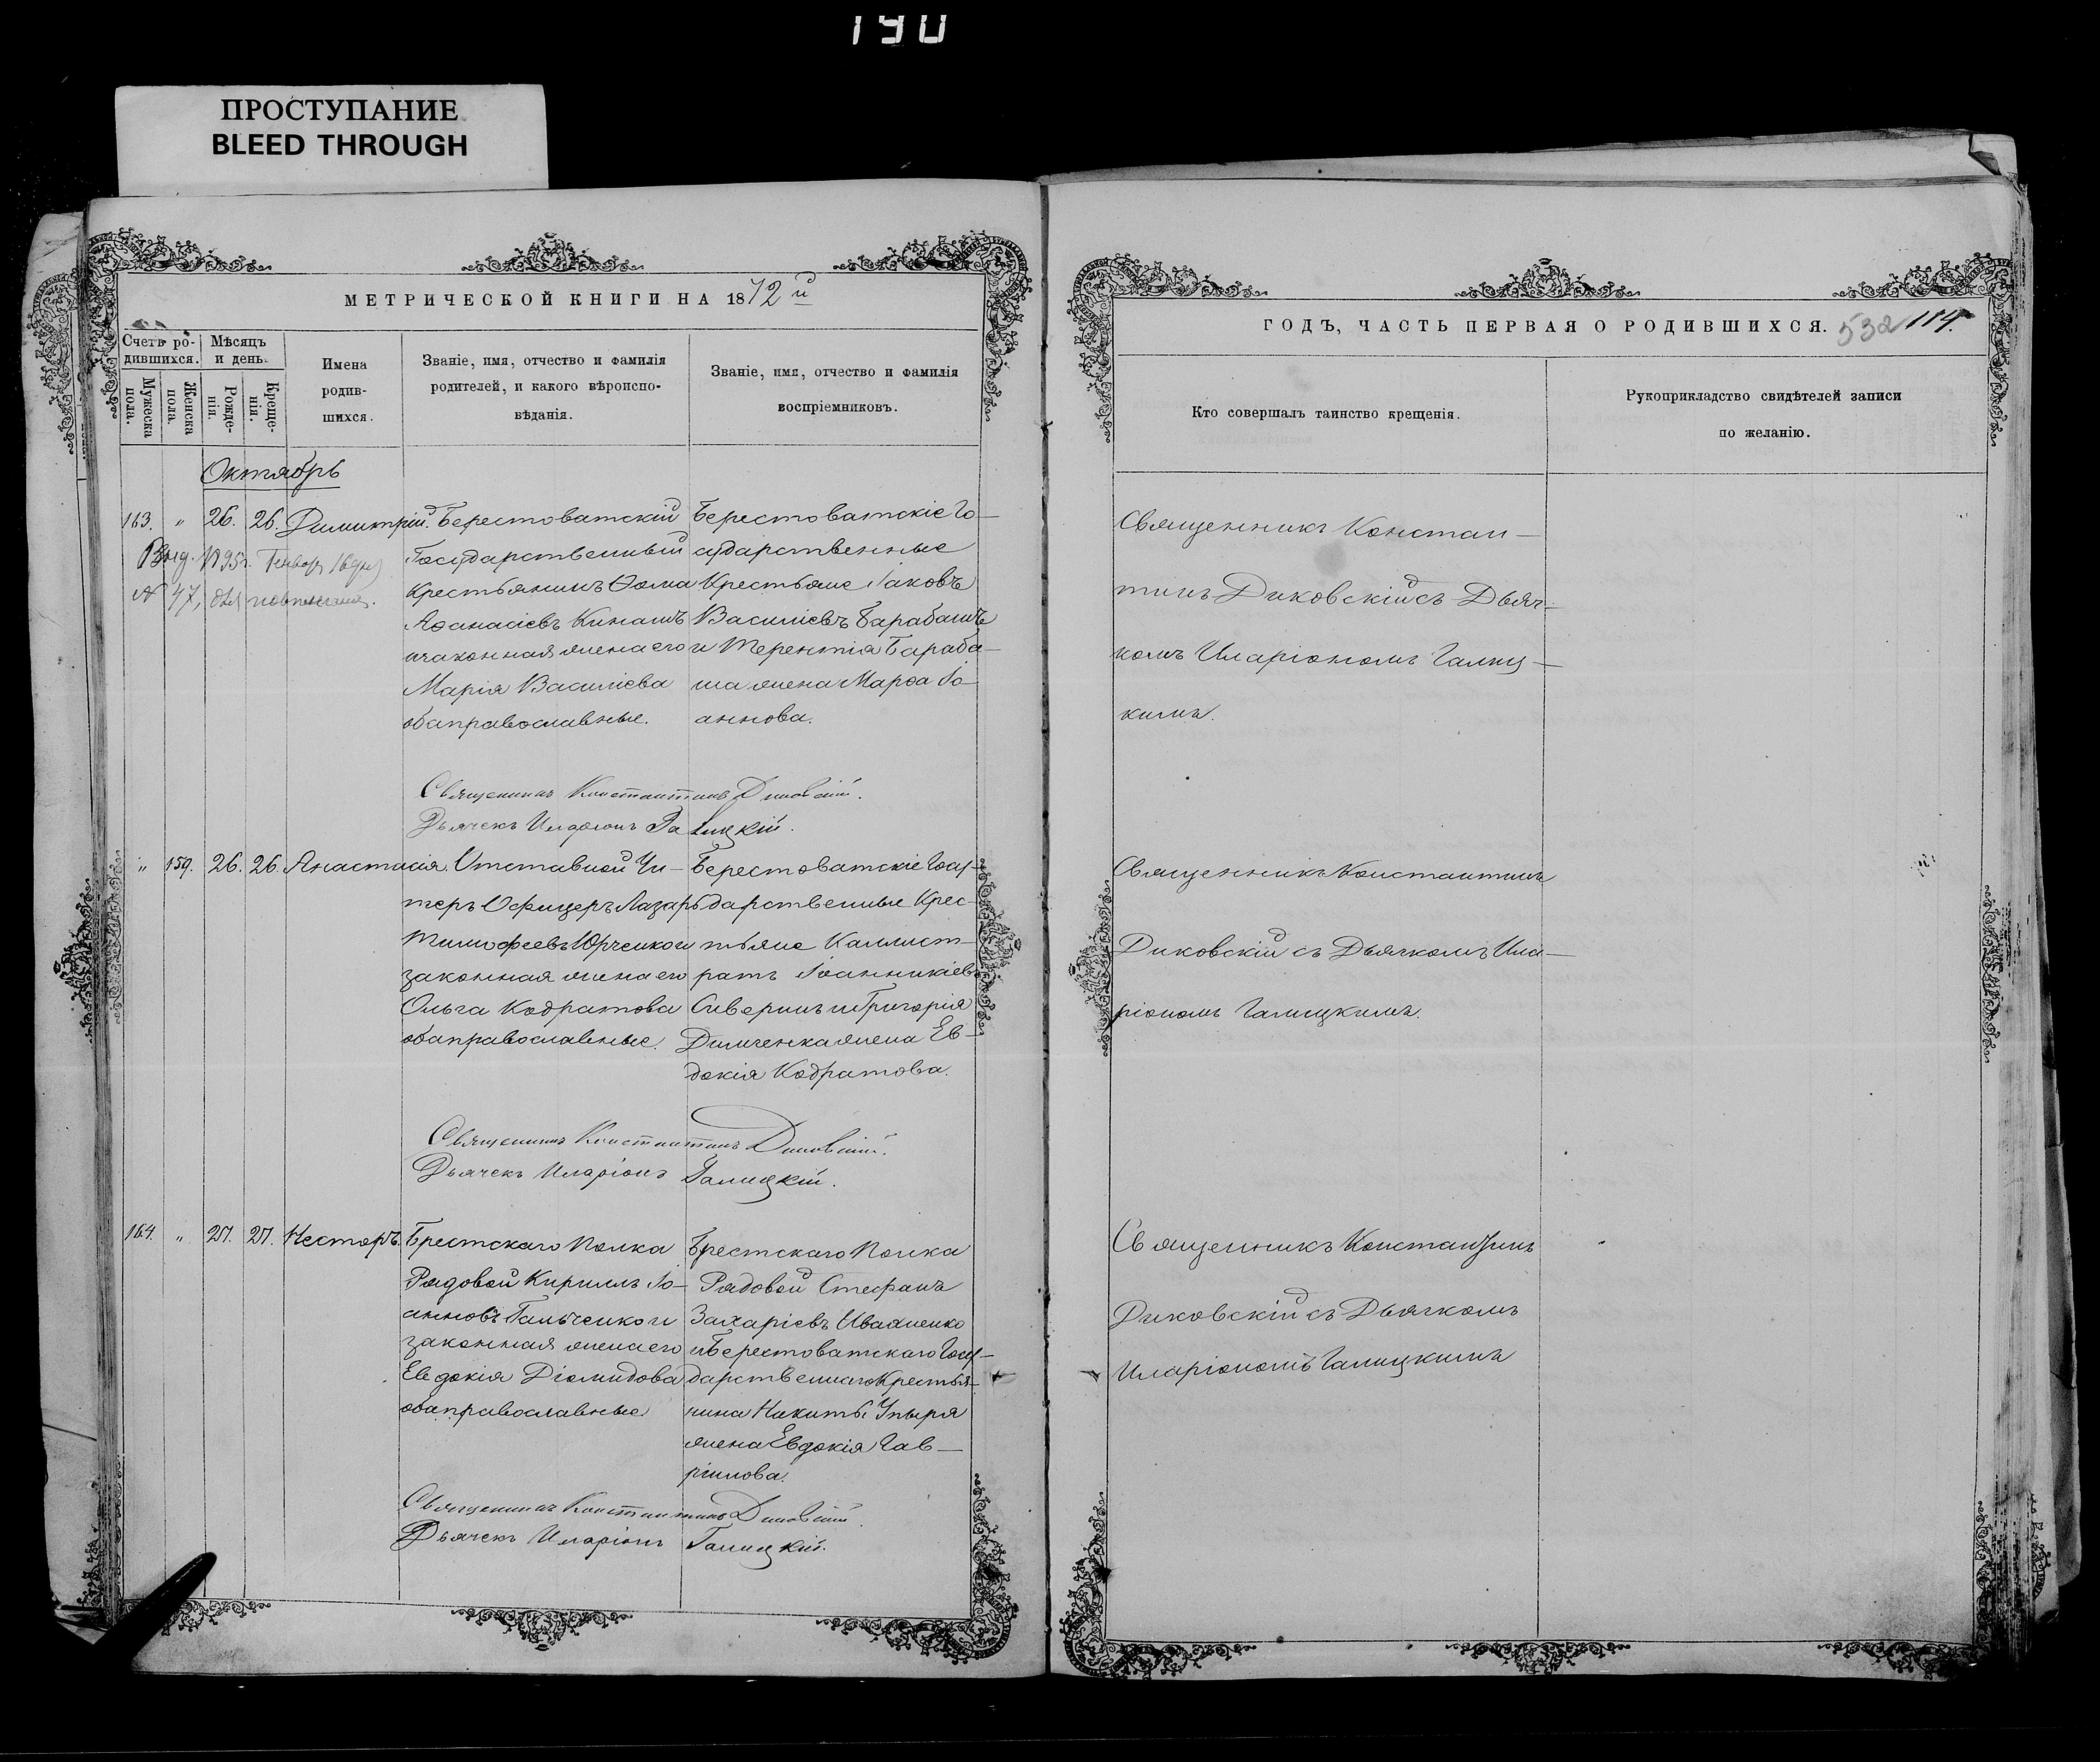 190
ПРОСТУПАНИЕ
BLEED THROUGH
МЕТРИЧЕСКОЙ КНИГИ НА 1872й
Счетъ ро-
дившихся.
Мѣсяцъ
и день.
Мужеска
пола.
Женска
пола.
Рожде-
нія.
Креще-
нія.
Имена
родив-
шихся.
Званіе, имя, отчество и фамилія
родителей, и какого вѣроиспо-
вѣданія.
Званіе, имя, отчество и фамилія
воспріемниковъ.
Октябрь
163. " 26. 26. Димитрій.
Выд.
№ 47,
Берестоватскій
Государственный
крестьянинъ Ѳома
Аѳанасіевъ Кинашъ
и законная жена его
Марія Василіева
оба православные.
Берестоватскіе Го-
сударственные
Крестьяне Іаковъ
Василіевъ Барабашъ
и Терентія Бараба-
ша жена Марѳа Іо-
аннова.
Священникъ Константинъ Диковскій.
Дьячекъ Иларіонъ Галицкій.
" 159. 26. 26. Анастасія.
Отставной Ун-
теръ Офицеръ Лазарь
Тимофеевъ Юрченко и
законная жена его
Ольга Кодратова
оба православные.
Берестоватскіе Госу-
дарственные Крес-
тьяне Каллист-
ратъ Іоанникіевъ
Сиверинъ и Григорія
Димченка жена Ев-
докія Кодратова.
Священникъ Константинъ Диковскій.
Дьячекъ Иларіонъ Галицкій.
164. " 27. 27. Несторъ.
Брестскаго Полка
Рядовой Кириллъ Іо-
анновъ Гальченко и
законная жена его
Евдокія Діомидова
оба православные.
Брестскаго Полка
Рядовой Стефанъ
Захаріевъ Иваненко
и Берестоватскаго Госу-
дарственнаго Крестья-
нина Никиты Упыря
жена Евдокія Гав-
ріилова.
Священникъ Константинъ Диковскій.
Дьячекъ Иларіонъ Галицкій.
ГОДЪ, ЧАСТЬ ПЕРВАЯ О РОДИВШИХСЯ. 532 114.
Кто совершалъ таинство крещенія.
Рукоприкладство свидѣтелей записи
по желанію.
Священникъ Констан-
тинъ Диковскій съ Дьяч-
комъ Иларіономъ Галиц-
кимъ.
Священникъ Константинъ
Диковскій съ Дьячкомъ Ила-
ріономъ Галицкимъ.
Священникъ Константинъ
Диковскій съ Дьячкомъ
Иларіономъ Галицкимъ